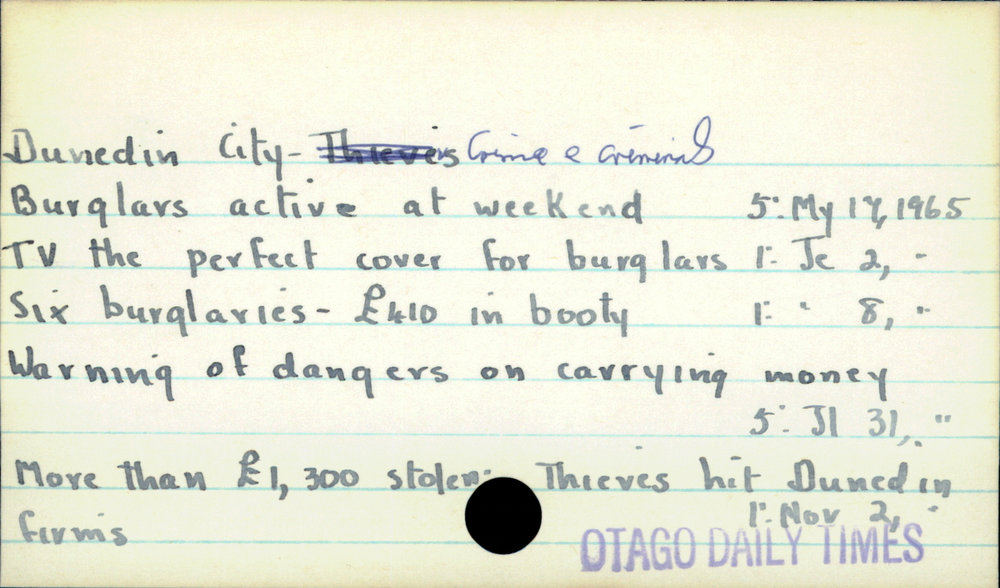 Dunedin City - Thieves Crime & criminals
Burglars active at weekend 5: My 17, 1965
TV the perfect cover for burglars 1: Je 2, "
Six burglaries - £410 in booty 1: " 8, "
Warning of dangers on carrying money
5: Jl 31, "
More than £1,300 stolen: Thieves hit Dunedin
firms 1: Nov 2, "
OTAGO DAILY TIMES